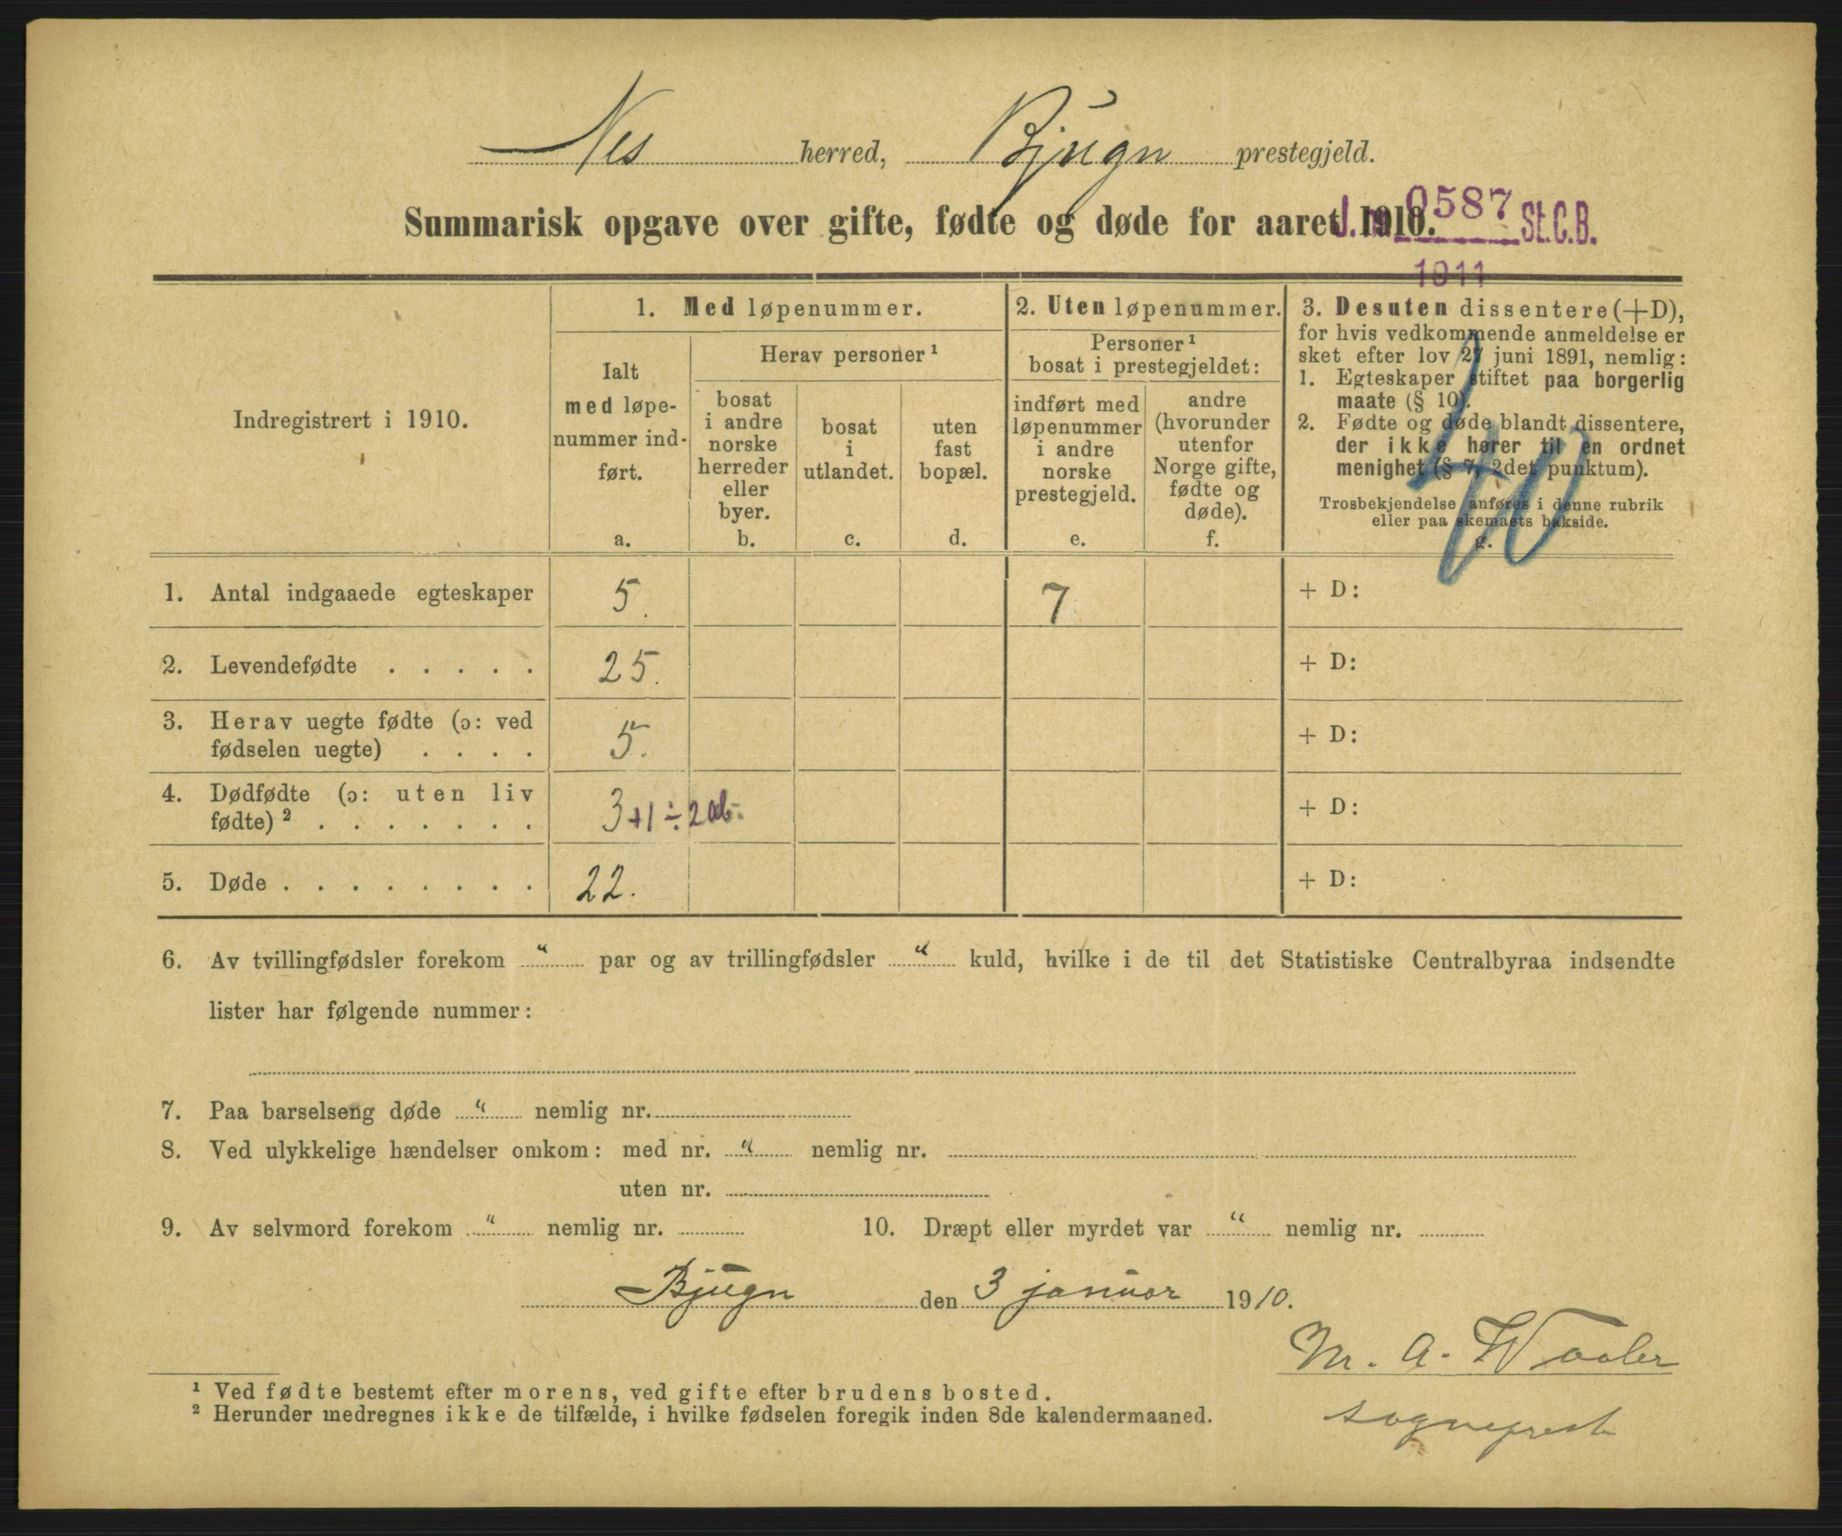 Nes herred, Bjugn prestegjeld.
Summarisk opgave over gifte, fødte og døde for aaret 1910.
J. nr. 0587 St.C.B.
1911
Indregistrert i 1910.
1. Med løpenummer.
Ialt
med løpe-
nummer ind-
ført.
a.
Herav personer ¹
bosat
i andre
norske
herreder
eller
byer.
b.
bosat
i
utlandet.
c.
uten
fast
bopæl.
d.
2. Uten løpenummer.
Personer ¹
bosat i prestegjeldet:
indført med
løpenummer
i andre
norske
prestegjeld.
e.
andre
(hvorunder
utenfor
Norge gifte,
fødte og
døde).
f.
3. Desuten dissentere (+D),
for hvis vedkommende anmeldelse er
sket efter lov 27 juni 1891, nemlig:
1. Egteskaper stiftet paa borgerlig
maate (§ 10).
2. Fødte og døde blandt dissentere,
der ikke hører til en ordnet
menighet (§ 7, 2det punktum).
Trosbekjendelse anføres i denne rubrik
eller paa skemaets bakside.
g.
1. Antal indgaaede egteskaper 5. 7 + D:
2. Levendefødte . . . . . 25. + D:
3. Herav uegte fødte (ɔ: ved
fødselen uegte) . . . . 5. + D:
4. Dødfødte (ɔ: uten liv
fødte) ² . . . . . . . 3 +1 ÷ 2 ab. + D:
5. Døde . . . . . . . . 22. + D:
6. Av tvillingfødsler forekom " par og av trillingfødsler " kuld, hvilke i de til det Statistiske Centralbyraa indsendte
lister har følgende nummer:
7. Paa barselseng døde " nemlig nr.
8. Ved ulykkelige hændelser omkom: med nr. " nemlig nr.
uten nr.
9. Av selvmord forekom " nemlig nr. 10. Dræpt eller myrdet var " nemlig nr.
Bjugn den 3 januar 1910.
M. A. Waaler
sogneprest
¹ Ved fødte bestemt efter morens, ved gifte efter brudens bosted.
² Herunder medregnes ikke de tilfælde, i hvilke fødselen foregik inden 8de kalendermaaned.